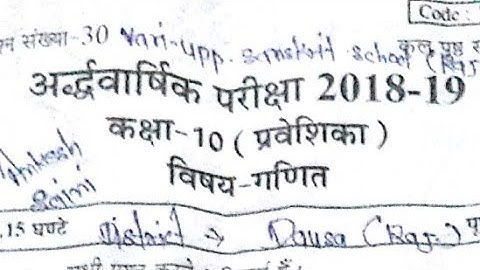 Code :
संख्या-30 Vari-upp. Sanskrit school (Raj
अर्द्धवार्षिक परीक्षा 2018-19
कक्षा-10 ( प्रवेशिका )
विषय-गणित
Saini
.15 घण्टे District → Dausa (Raj.)